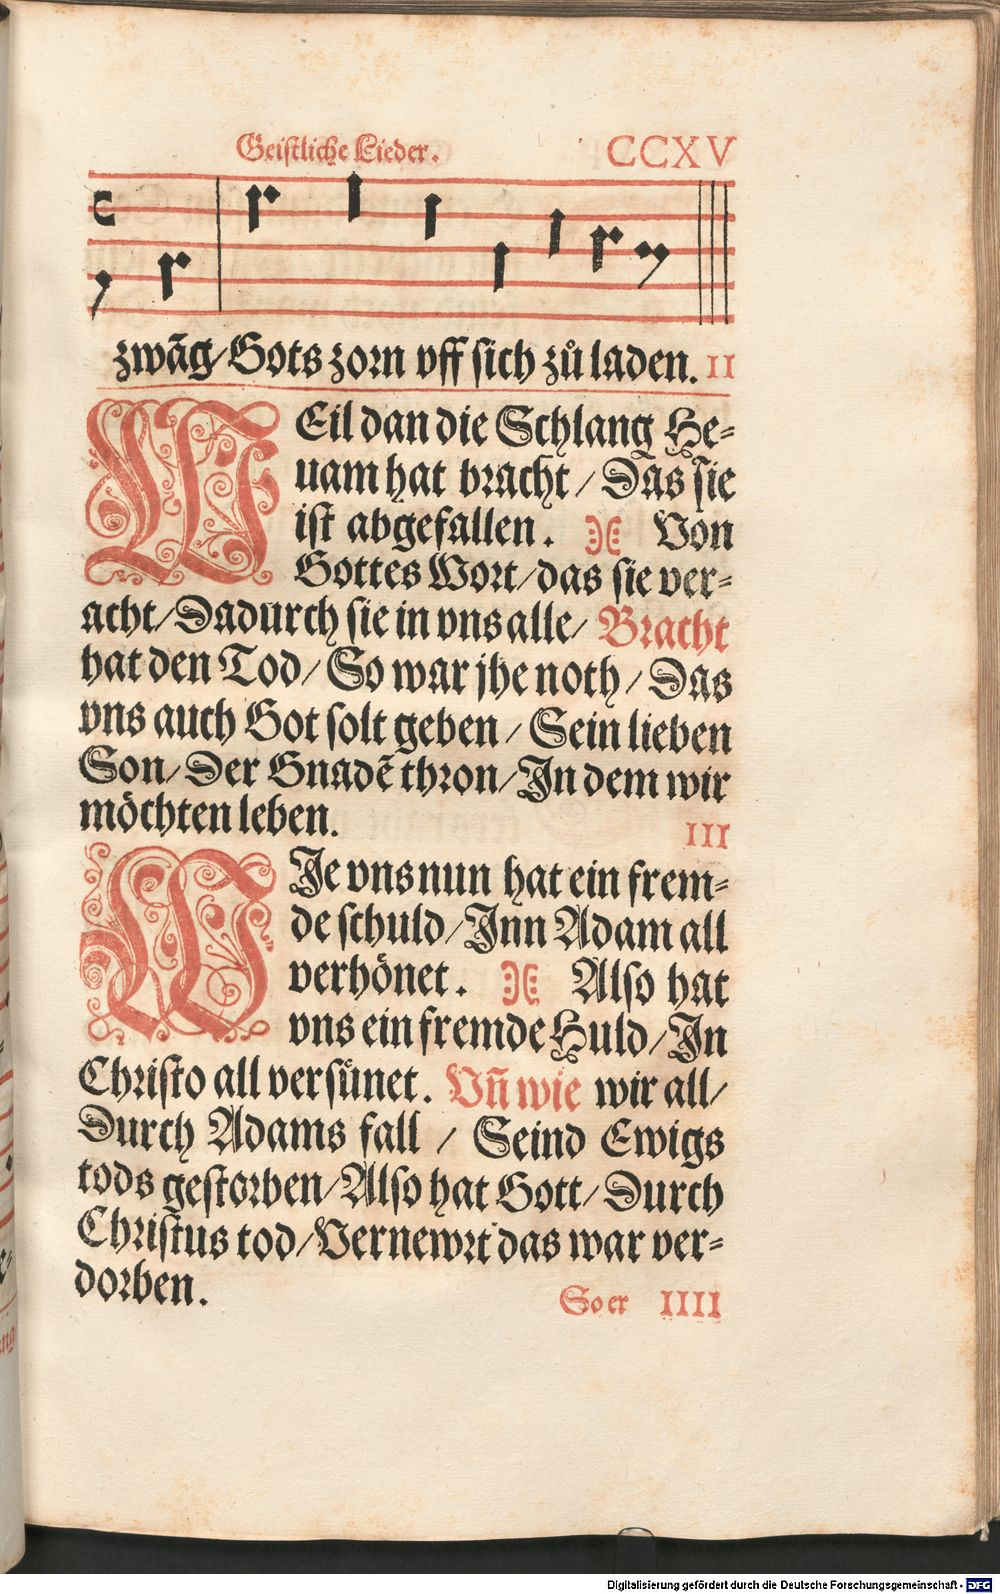 Geistliche Lieder. CCXV
zwãg/Gots zorn vff sich zů laden. II
WEil dan die Schlang He-
uam hat bracht / Das sie
ist abgefallen. Von
Gottes Wort/das sie ver-
acht/Dadurch sie in vns alle/ Bracht
hat den Tod/ So war jhe noth / Das
vns auch Got solt geben / Sein lieben
Son/Der Gnadẽ thron/In dem wir
möchten leben. III
WJe vns nun hat ein frem-
de schuld/Jnn Adam all
verhönet. Also hat
vns ein fremde Huld/Jn
Christo all versünet. Vñ wie wir all/
Durch Adams fall / Seind Ewigs
tods gestorben/Also hat Gott/Durch
Christus tod/Vernewrt das war ver-
dorben.
So er IIII
Digitalisierung gefördert durch die Deutsche Forschungsgemeinschaft - DFG